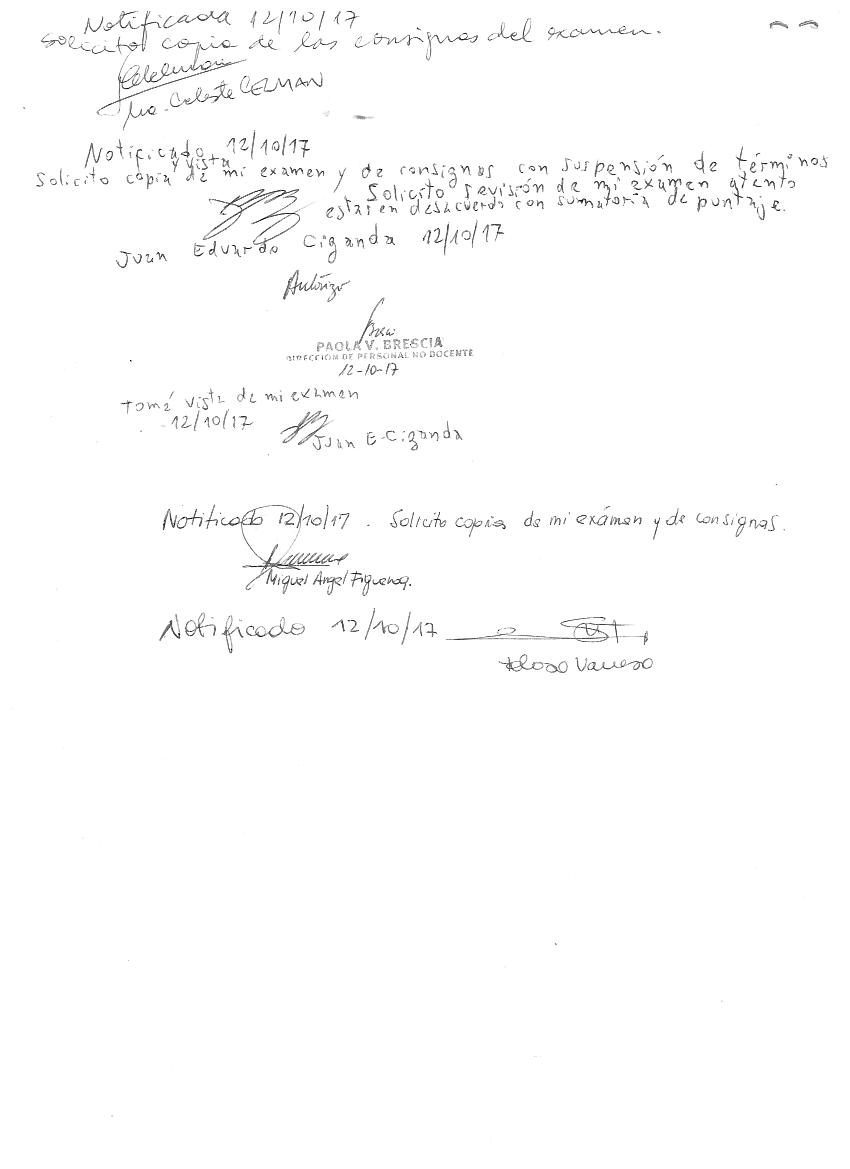 Notificada 12/10/17
solicito copia de las consignas del examen.
Ma. Celeste CELMAN
Notificado 12/10/17
y vista
Solicito copia de mi examen y de consignas con suspensión de términos
Solicito revisión de mi examen atento
estar en desacuerdo con sumatoria de puntaje.
Juan Eduardo Ciganda 12/10/17
Autorizo
PAOLA V. BRESCIA
DIRECCION DE PERSONAL NO DOCENTE
12-10-17
Tomé vista de mi examen
12/10/17
Juan E. Ciganda
Notificado 12/10/17. Solicito copia de mi exámen y de consignas.
Miguel Angel Figueroa.
Notificado 12/10/17